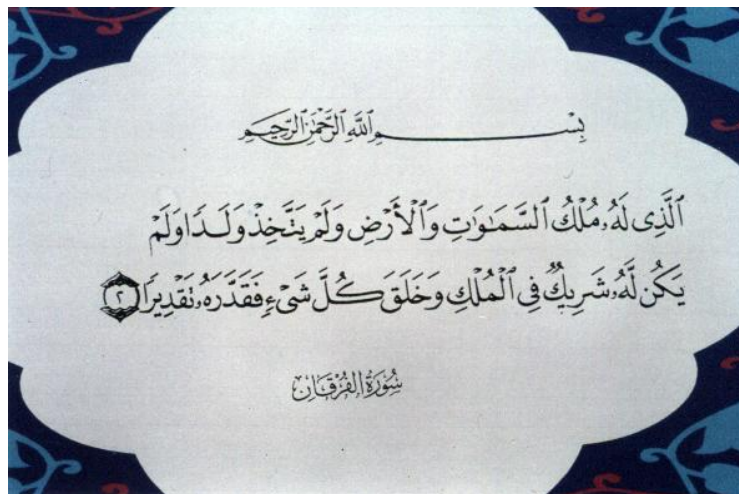 بِسْمِ ٱللَّهِ ٱلرَّحْمَٰنِ ٱلرَّحِيمِ
ٱلَّذِى لَهُۥ مُلْكُ ٱلسَّمَٰوَٰتِ وَٱلْأَرْضِ وَلَمْ يَتَّخِذْ وَلَدًا وَلَمْ
يَكُن لَّهُۥ شَرِيكٌ فِى ٱلْمُلْكِ وَخَلَقَ كُلَّ شَىْءٍ فَقَدَّرَهُۥ تَقْدِيرًا ٢
سُورَةُ الفُرْقَان